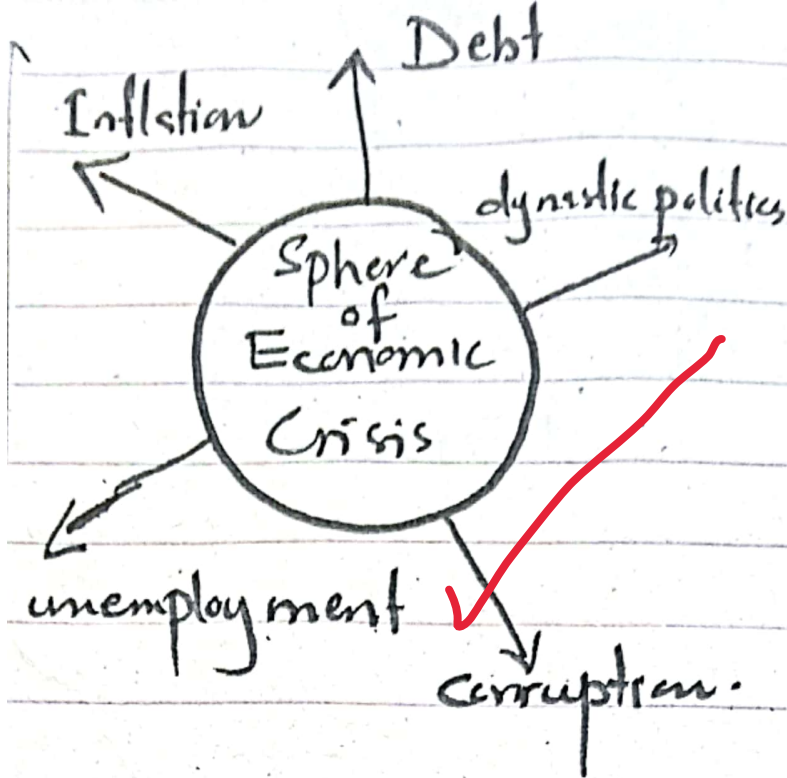 Debt
Inflation
dynastic politics
Sphere
of
Economic
Crisis
unemployment
Corruption.